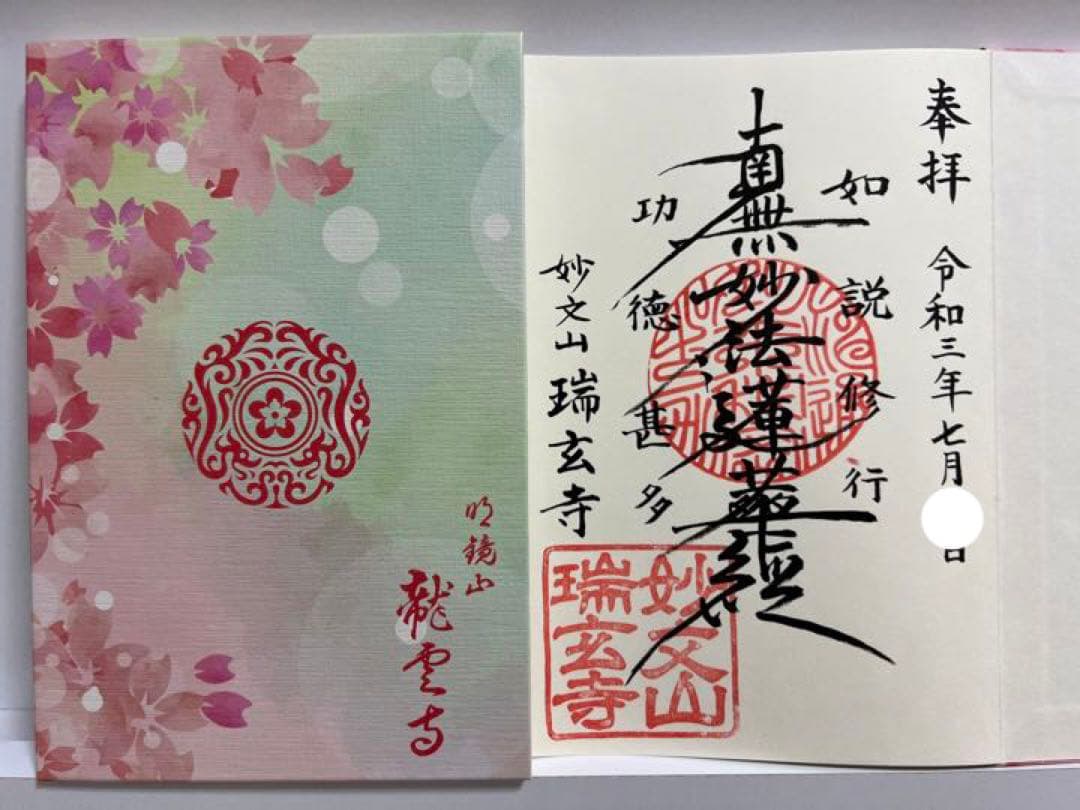 明鏡山
龍雲寺
奉拝 令和三年七月 日
如説修行
南無妙法蓮華経
功徳甚多
妙文山 瑞玄寺
妙文山
瑞玄寺